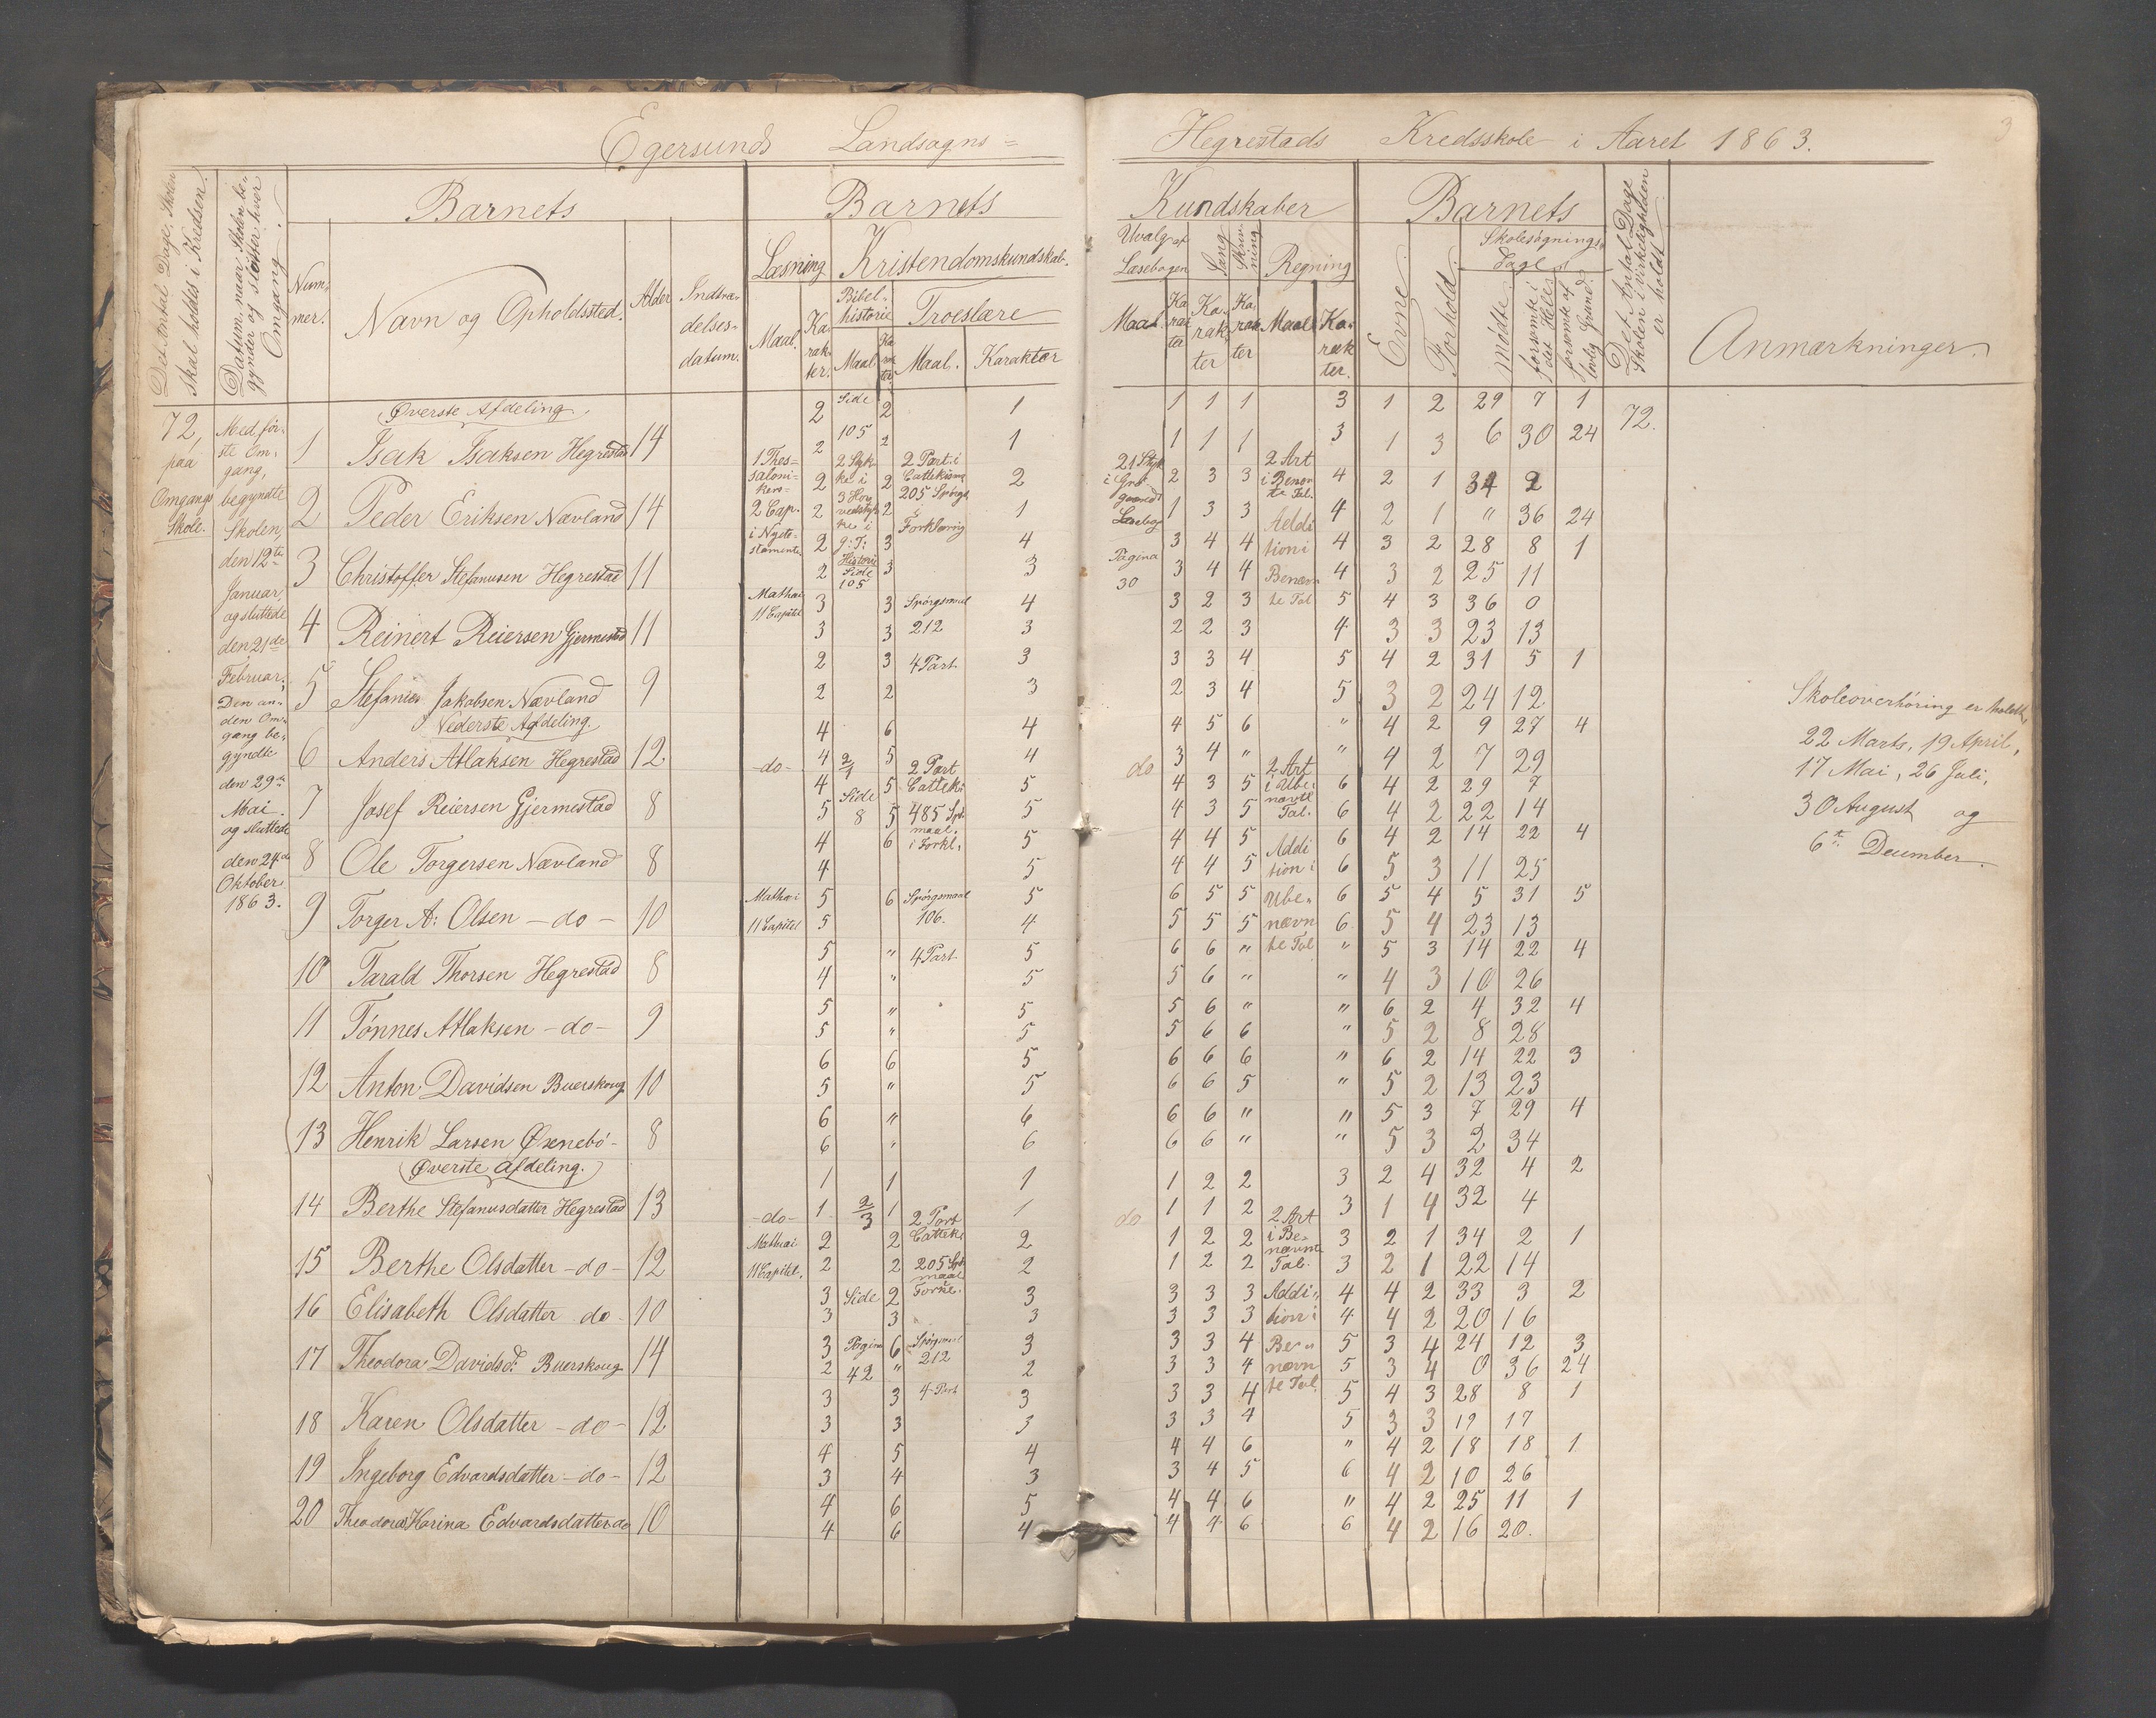 Egersunds Landsogns= Hegrestads Kredsskole i Aaret 1863.
3
Det Antal Dage, Skolen skal holdes i Kredsen.
Datum, naar Skolen begynder og slutter hver Omgang.
Barnets
Nummer.
Navn og Opholdssted.
Alder
Indtrædelsesdatum.
Barnets Kundskaber
Læsning
Maal.
Karakter.
Kristendomskundskab.
Bibelhistorie
Maal
Karakter
Troeslære
Maal.
Karakter
Udvalg af Læsebogen
Maal
Karakter
Sang
Karakter
Skrivning
Karakter
Regning
Maal
Karakter.
Barnets
Evne.
Forhold.
Skolesøgnings Dage
mødte
forsømte i det Hele
forsømte af lovlig Grund.
Det Antal Dage Skolen i virkeligheden er holdt.
Anmærkninger.
72, paa Omgangs Skole.
Med første Omgang, begyndte Skolen, den 12te Januar, og sluttede den 21de Februar; Den anden Omgang begyndte den 29de Mai og sluttede den 24de Oktober 1863.
Øverste Afdeling.
1 Isak Isaksen Hegrestad 14
2 2 1 1 1 1 3 1 2 29 7 1 72.
2 2 1 1 1 1 3 1 3 6 30 24
2 Peder Eriksen Nævland 14
2 2 2 2 3 3 4 2 1 34 2
2 2 1 1 3 3 4 2 1 " 36 24
3 Christoffer Stefanusen Hegrestad 11
2 3 4 3 4 4 4 3 2 28 8 1
2 3 3 3 4 4 4 3 2 25 11
4 Reinert Reiersen Gjermestad 11
3 3 4 3 2 3 5 4 3 36 0
3 3 3 2 2 3 4 3 3 23 13
5 Stefanies Jakobsen Nævland 9
2 3 3 3 3 4 5 4 2 31 5 1
2 2 3 2 3 4 5 3 2 24 12
Nederste Afdeling.
6 Anders Atlaksen Hegrestad 12
4 6 4 4 5 6 " 4 2 9 27 4
4 5 4 3 4 " " 4 2 7 29
7 Josef Reiersen Gjermestad 8
4 5 5 4 3 5 6 4 2 29 7
5 5 5 4 3 5 6 4 2 22 14
8 Ole Torgersen Nævland 8
4 6 5 4 4 5 6 4 2 14 22 4
4 5 4 4 5 6 5 3 11 25
9 Torger A: Olsen -do- 10
5 6 5 6 5 5 6 5 4 5 31 5
5 4 5 5 5 6 5 4 23 13
10 Tarald Thorsen Hegrestad 8
5 " 5 6 6 " " 5 3 14 22 4
4 " 5 5 6 " " 4 3 10 26
11 Tønnes Atlaksen -do- 9
5 " 5 5 6 " " 6 2 4 32 4
5 " 5 5 6 6 " 5 2 8 28
12 Anton Davidsen Buerskoug 10
6 6 5 6 6 6 " 6 2 14 22 3
5 " 5 6 6 5 " 5 2 13 23
13 Henrik Larsen Øxnebø- 8
6 " 6 6 6 " " 5 3 7 29 4
6 " 6 6 6 " " 5 3 2 34
Øverste Afdeling.
14 Berthe Stefanusdatter Hegrestad 13
1 1 1 1 2 2 3 2 4 32 4 2
1 1 1 1 1 2 3 1 4 32 4
15 Berthe Olsdatter -do- 12
2 2 2 1 2 2 3 2 1 34 2 1
2 2 2 1 2 2 3 2 1 22 14
16 Elisabeth Olsdatter do- 10
3 2 3 3 3 3 4 4 2 33 3 2
3 3 3 3 3 3 4 4 2 20 16
17 Theodora Davidsd: Buerskoug 14
3 6 3 3 3 4 5 3 4 24 12 3
2 " 2 3 3 4 5 3 4 0 36 24
18 Karen Olsdatter -do- 12
3 3 3 3 3 4 5 4 3 28 8 1
3 3 3 3 3 4 5 3 3 19 17
19 Ingeborg Edvardsdatter -do- 12
4 5 4 4 4 6 " 4 2 18 18 1
3 4 3 3 4 5 6 4 2 10 26
20 Theodora Harina Edvardsdatter do 10
4 6 5 4 4 6 " 4 2 25 11 1
4 6 4 4 4 6 6 4 2 16 20.
1 Thessalonikers= 2 Cap. i Nyetestamente
Mathæi 11 Capitel
Side 105
2 Stykke i 3 Hovedstykke i g: T: Historie Side 105
2 Part i Cattekisme 205 Spörgs i Forklaring
Spörgsmaal 212
4 Part
21 Styk i Læsebog
Pagina 30
2 Art i Benævnte Tal.
Addition i Benævnte Tal
-do-
2/1 Side 8
2 Part Catteki 485 Sp. maal. i Forkl.
Mathæi 11 Capitel
Spörgsmaal 106.
4 Part
do
2 Art i Ubenævnte Tal.
Addition i Ubenævnte Tal
-do-
Mathæi 11 Capitel.
2/3 Side
Pagina 42
2 Part Catteki 205 Sp maal Forkl.
Spörgsmaal 212
4 Part
do
2 Art i Benævnte Tal.
Addition i Benævnte Tal
Skoleoverhøring er holdt,
22 Marts, 19 April,
17 Mai, 26 Juli,
30 August og
6te December.